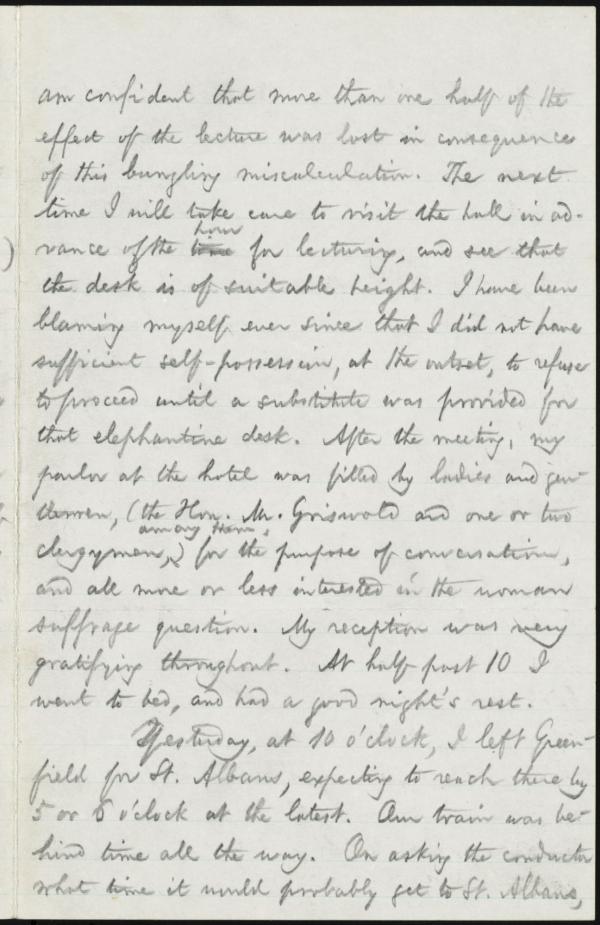 am confident that more than one half of the
effect of the lecture was lost in consequence
of this bungling miscalculation. The next
time I will take care to visit the hall in ad-
hour
vance of the time for lecturing, and see that
the desk is of suitable height. I have been
blaming myself ever since that I did not have
sufficient self-possession, at the outset, to refuse
to proceed until a substitute was provided for
that elephantine desk. After the meeting, my
parlor at the hotel was filled by ladies and gen-
tlemen, (the Hon. Mr. Griswold and one or two
among them,
clergymen,) for the purpose of conversation,
and all more or less interested in the woman
suffrage question. My reception was very
gratifying throughout. At half-past 10 I
went to bed, and had a good night's rest.
Yesterday, at 10 o'clock, I left Green-
field for St. Albans, expecting to reach there by
5 or 6 o'clock at the latest. Our train was be-
hind time all the way. On asking the conductor
what time it would probably get to St. Albans,